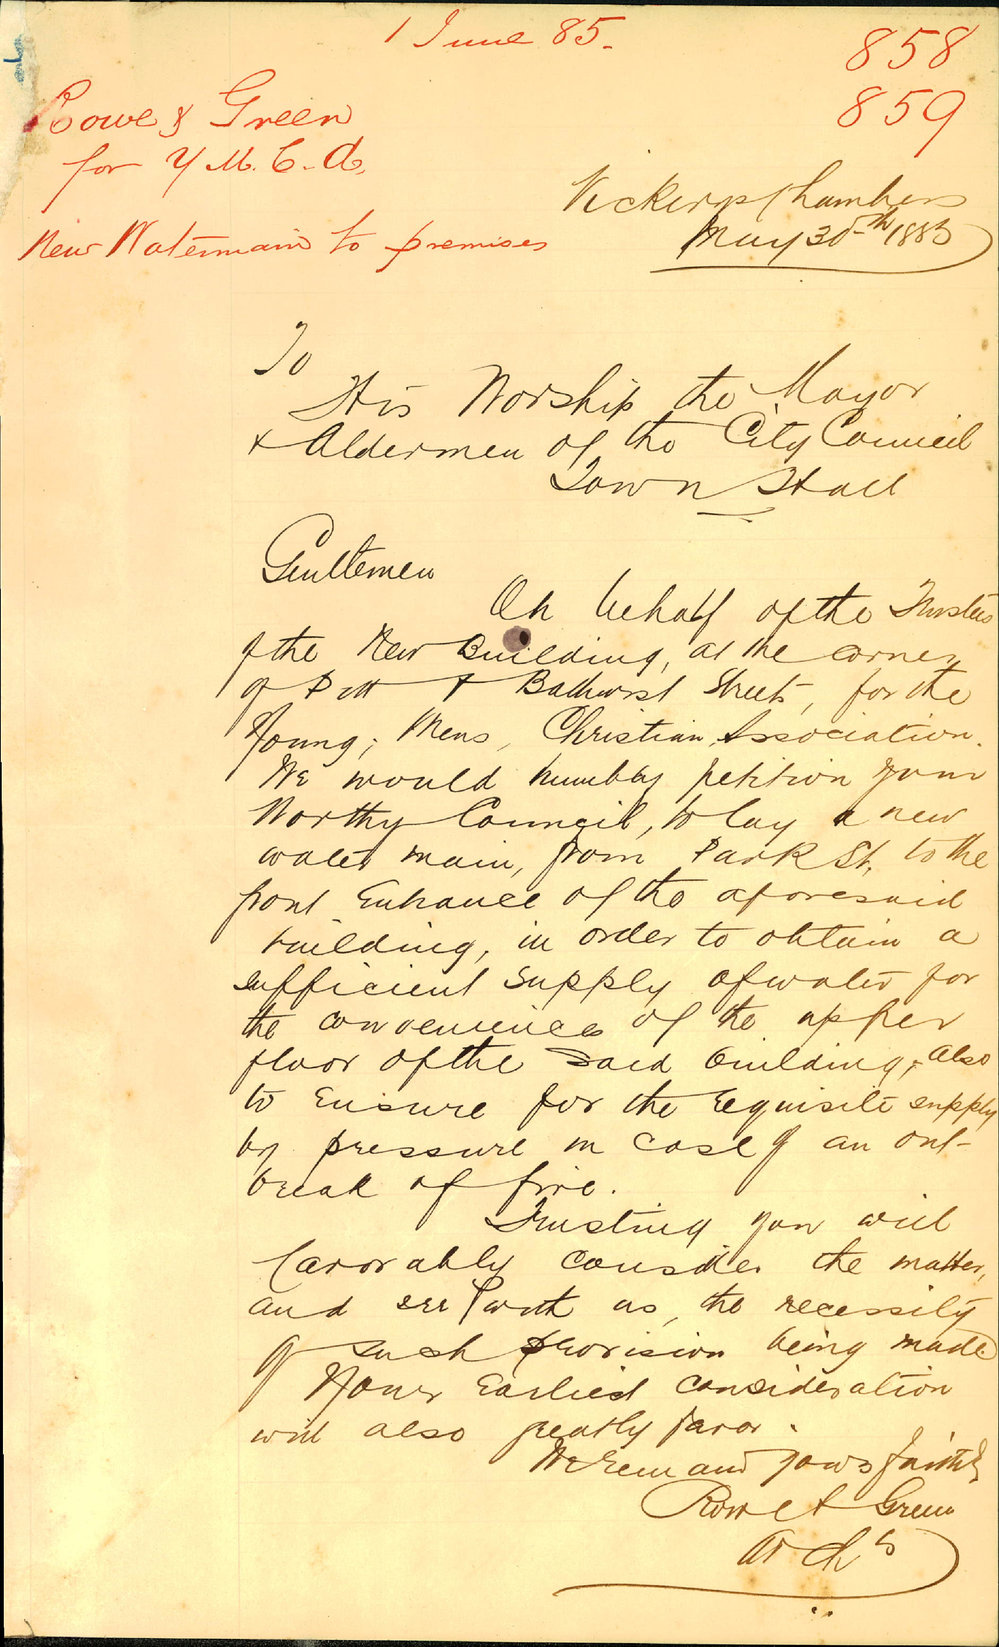 1 June 85.
858
859
Rowe & Green
for Y.M.C.A.
New Watermain to premises
Vickery's Chambers
May 30th 1885
To
His Worship the Mayor
& Aldermen of the City Council
Town Hall
Gentlemen
On behalf of the Trustees
of the New Building, at the corner
of Pitt & Bathurst Streets, for the
Young, Mens, Christian, Association.
We would humbly petition your
Worthy Council, to lay a new
water main, from Park St, to the
front Entrance of the aforesaid
building, in order to obtain a
sufficient supply of water for
the conveniences of the upper
floor of the said building, also
to Ensure for the requisite supply
by pressure in case of an out-
break of fire.
Trusting you will
favorably consider the matter,
and see with us, the necessity
of such provision being made
Your Earliest consideration
will also greatly favor.
We remain yours faithfly
Rowe & Green
Archts